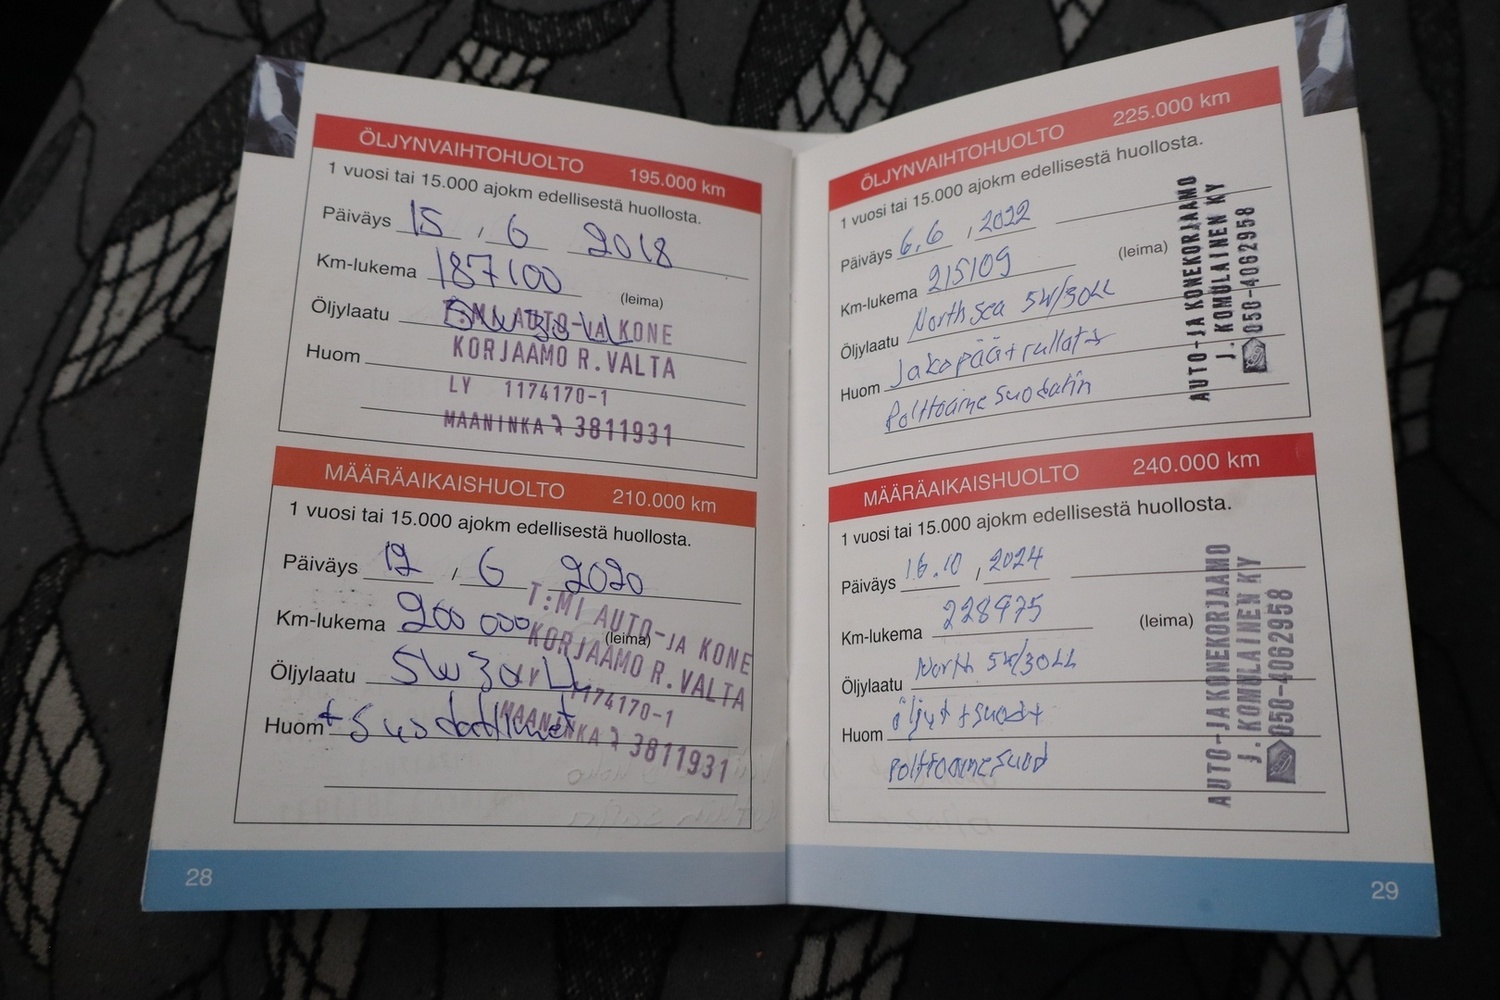 ÖLJYNVAIHTOHUOLTO 195.000 km
1 vuosi tai 15.000 ajokm edellisestä huollosta.
Päiväys 15 , 6 2018
Km-lukema 187100
(leima)
Öljylaatu 5w30LL
T:MI AUTO-JA KONE
Huom
KORJAAMO R. VALTA
LY 1174170-1
MAANINKA 3811931
MÄÄRÄAIKAISHUOLTO 210.000 km
1 vuosi tai 15.000 ajokm edellisestä huollosta.
Päiväys 12 , 6 2020
Km-lukema 200 000
(leima)
Öljylaatu 5w30LL
Huom + Suodattimet
T:MI AUTO-JA KONE
KORJAAMO R. VALTA
LY 1174170-1
MAANINKA 3811931
28
ÖLJYNVAIHTOHUOLTO 225.000 km
1 vuosi tai 15.000 ajokm edellisestä huollosta.
Päiväys 6.6 , 2022
Km-lukema 215109
(leima)
Öljylaatu North sea 5W/30LL
Huom Jakopää+rullat+
Polttoaine suodatin
AUTO-JA KONEKORJAAMO
J. KOMULAINEN KY
050-4062958
MÄÄRÄAIKAISHUOLTO 240.000 km
1 vuosi tai 15.000 ajokm edellisestä huollosta.
Päiväys 16.10 , 2024
Km-lukema 228975
(leima)
Öljylaatu North 5W/30LL
Huom öljyt+suod+
polttoainesuod
AUTO-JA KONEKORJAAMO
J. KOMULAINEN KY
050-4062958
29